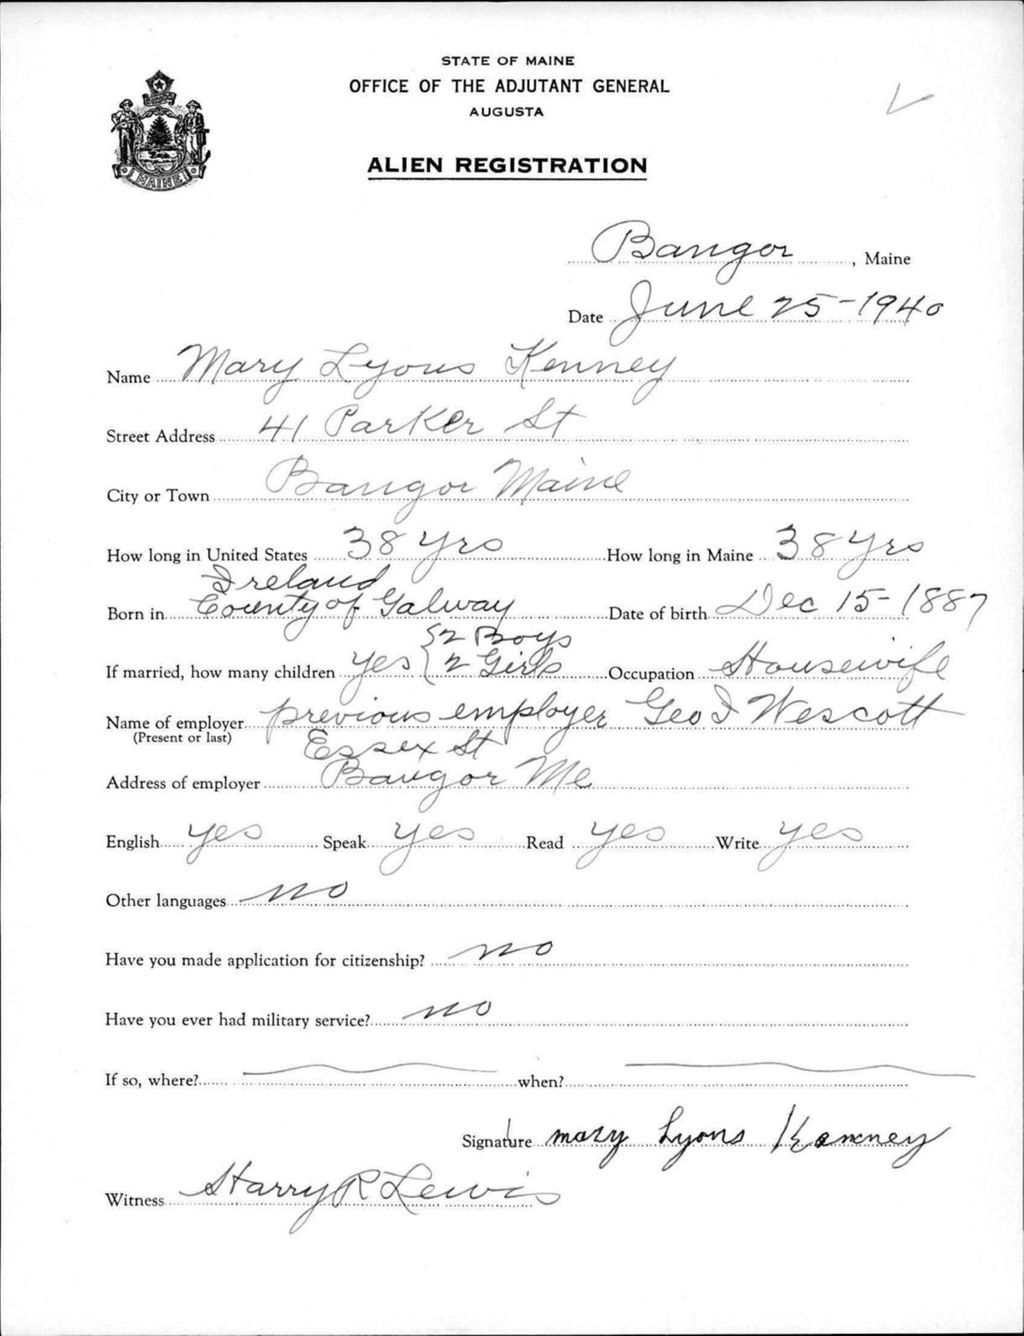 STATE OF MAINE
OFFICE OF THE ADJUTANT GENERAL
AUGUSTA
ALIEN REGISTRATION
MAINE
Bangor, Maine
Date June 25-1940
Name Mary Lyons Kenney
Street Address 41 Parker St
City or Town Bangor Maine
How long in United States 38 yrs How long in Maine 38 yrs
Ireland
Born in County of Galway Date of birth Dec 15-1887
2 Boys
If married, how many children yes 2 Girls Occupation Housewife
Name of employer previous employer Geo I Wescott
(Present or last)
Essex St
Address of employer Bangor Me
English yes Speak yes Read yes Write yes
Other languages no
Have you made application for citizenship? no
Have you ever had military service? no
If so, where? when?
Signature Mary Lyons Kenney
Witness Harry R Lewis